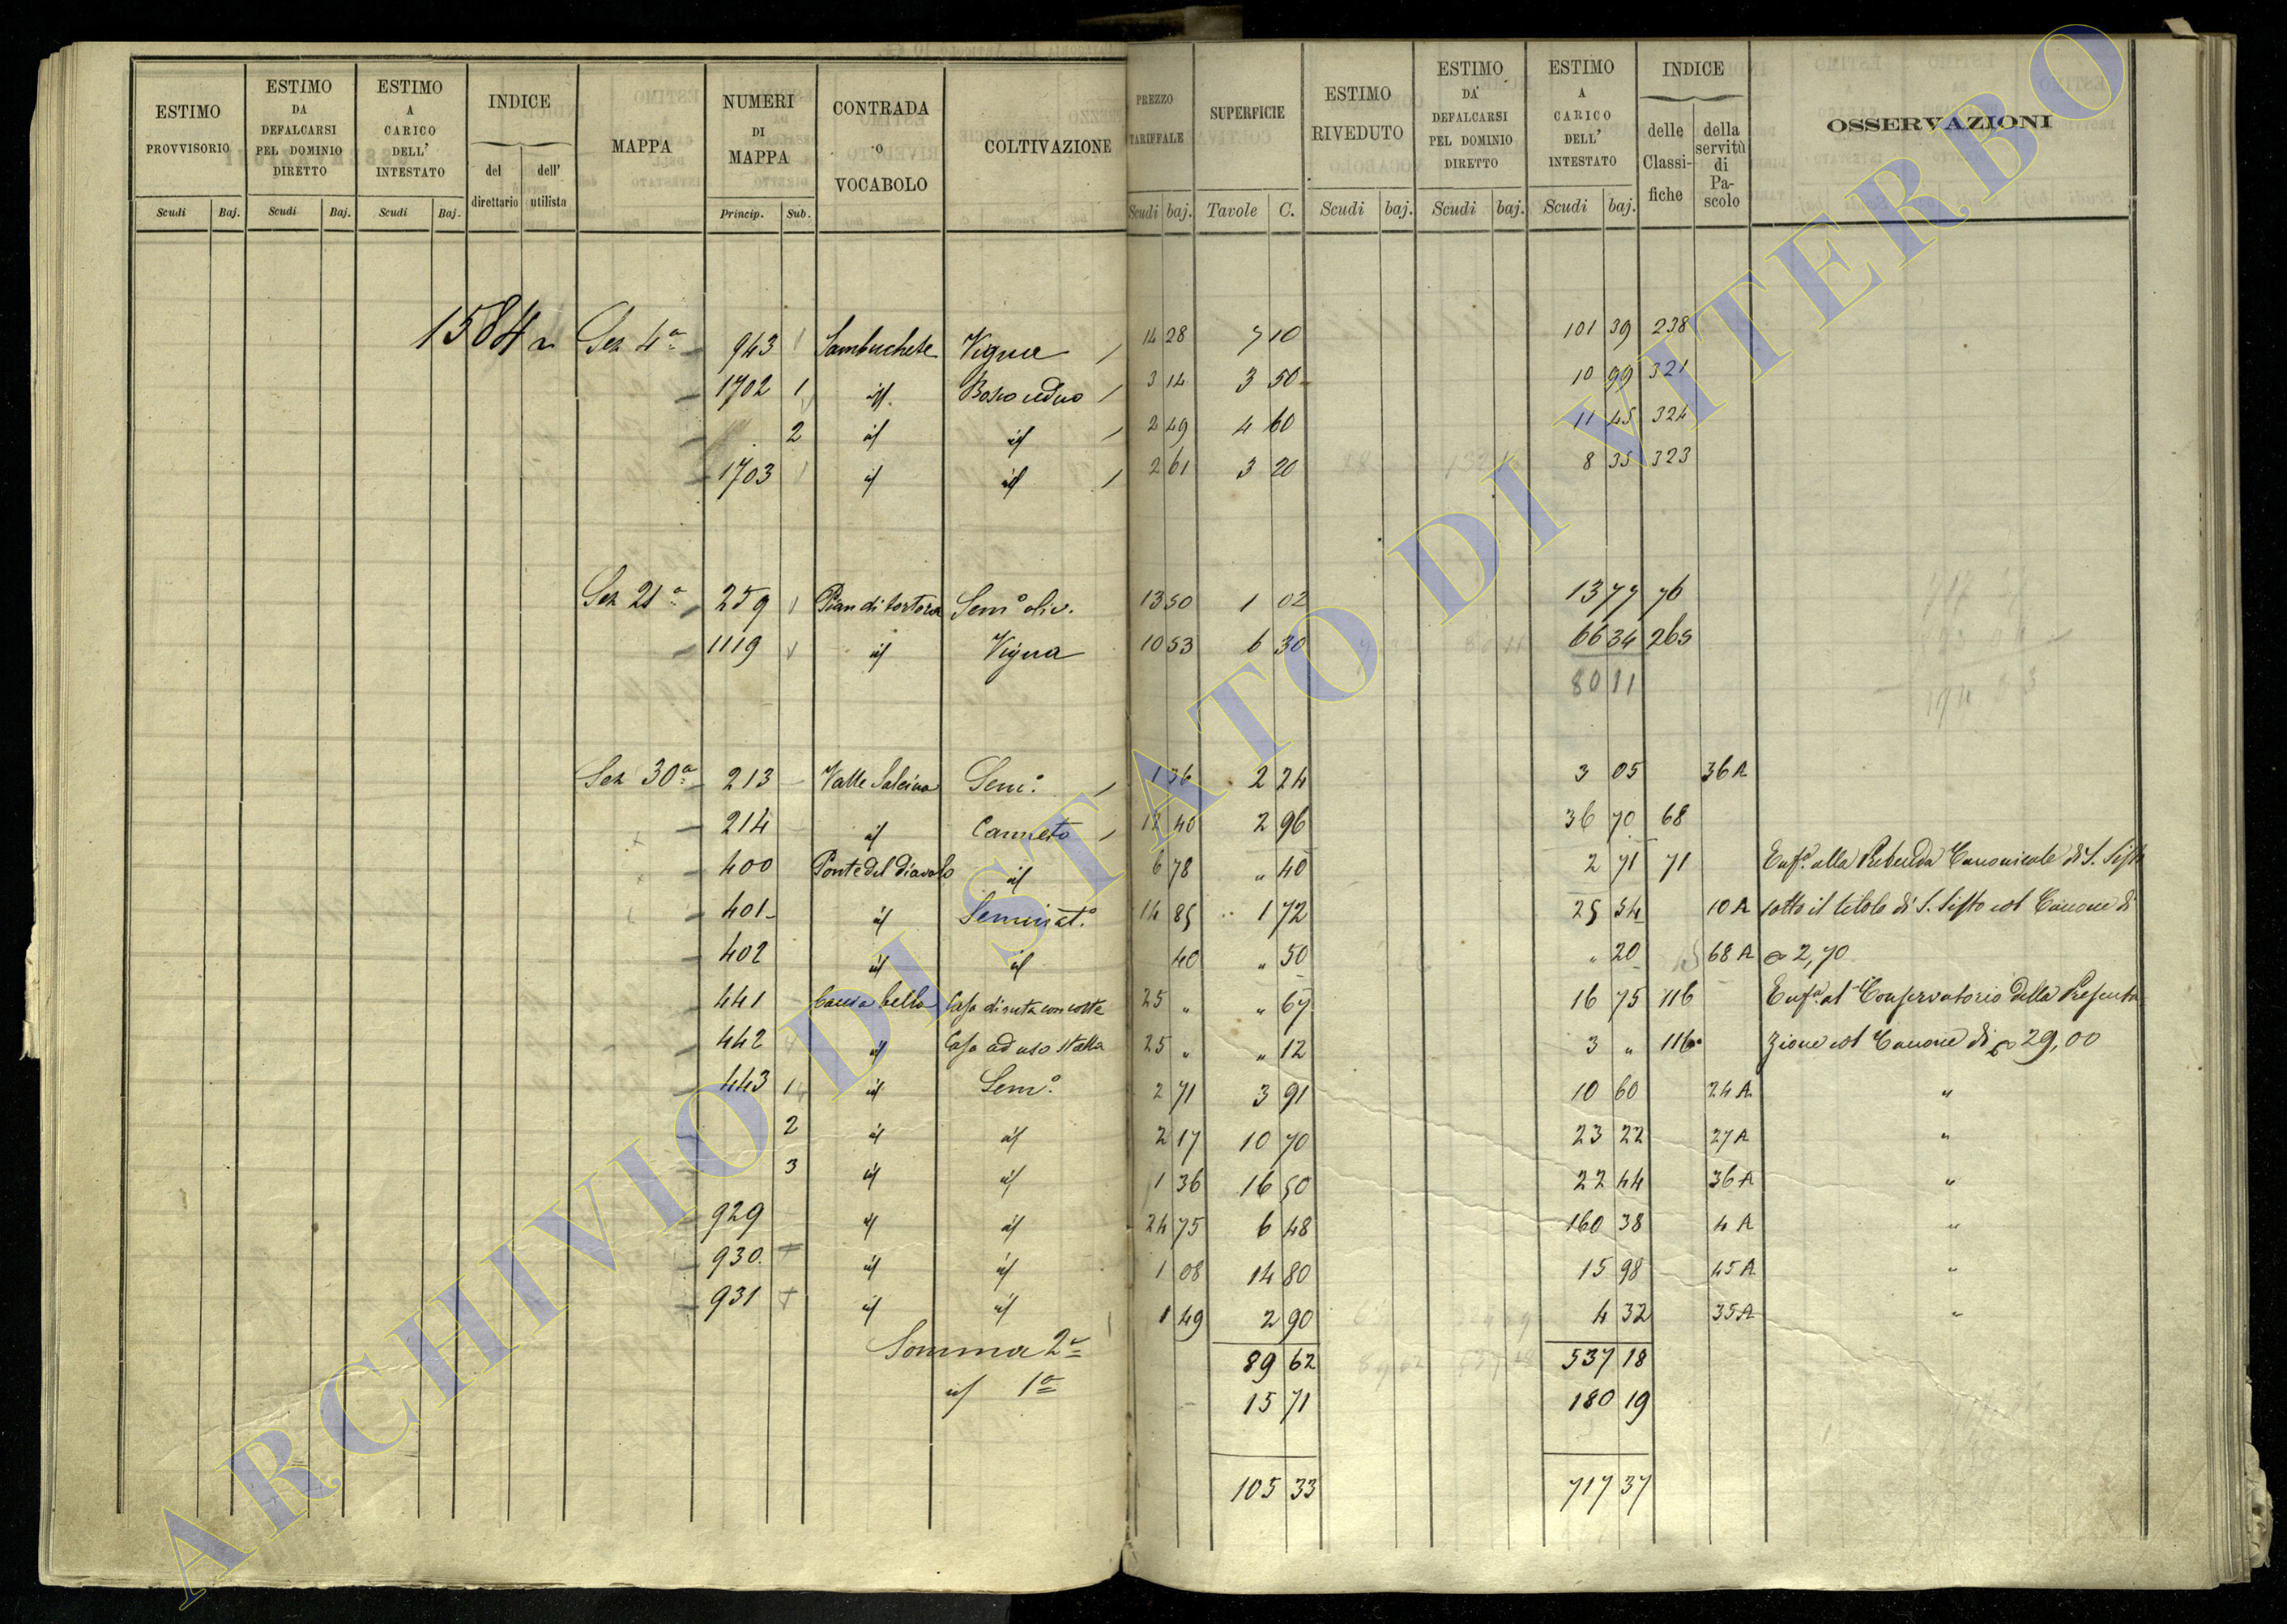 ESTIMO PROVVISORIO Scudi Baj.
ESTIMO DA DEFALCARSI PEL DOMINIO DIRETTO Scudi Baj.
ESTIMO A CARICO DELL' INTESTATO Scudi Baj.
INDICE del direttario dell' utilista
MAPPA
NUMERI DI MAPPA Princip. Sub.
CONTRADA O VOCABOLO
COLTIVAZIONE
PREZZO TARIFFALE Scudi baj.
SUPERFICIE Tavole C.
ESTIMO RIVEDUTO Scudi baj.
ESTIMO DA DEFALCARSI PEL DOMINIO DIRETTO Scudi baj.
ESTIMO A CARICO DELL' INTESTATO Scudi baj.
INDICE delle Classifiche della servitù di Pascolo
OSSERVAZIONI
1584 Sez 4ª 943 Sambuchete Vigna 14 28 7 10 101 39 238
1702 1 id. Bosco ceduo 3 14 3 50 10 99 321
2 id id 2 49 4 60 11 45 324
1703 id id 2 61 3 20 8 35 323
Sez 21ª 259 Pian di tortora Sem° oliv. 13 50 1 02 13 77 76
1119 id Vigna 10 53 6 30 66 34 265
80 11
Sez 30ª 213 Valle Salcina Sem° 1 36 2 24 3 05 36A
214 id Canneto 12 40 2 96 36 70 68
400 Ponte del Diavolo id 6 78 " 40 2 71 71 Enfª alla Prebenda Canonicale di S. Sisto
401 id Seminat° 14 85 1 72 25 54 10A sotto il titolo di S. Sisto col Canone di
402 id id 40 " 50 " 20 68A 2,70
441 bella Casa diruta con corte 25 " " 67 16 75 116 Enfª al Conservatorio della Presenta
442 id Casa ad uso stalla 25 " " 12 3 " 116 zione col Canone di 29,00
443 1 id Sem° 2 71 3 91 10 60 24A "
2 id id 2 17 10 70 23 22 27A "
3 id id 1 36 16 50 22 44 36A "
929 id id 24 75 6 48 160 38 4A "
930 id id 1 08 14 80 15 98 45A "
931 id id 1 49 2 90 4 32 35A "
Somma 2ª 89 62 537 18
id 1ª 15 71 180 19
105 33 717 37
ARCHIVIO DI STATO DI VITERBO